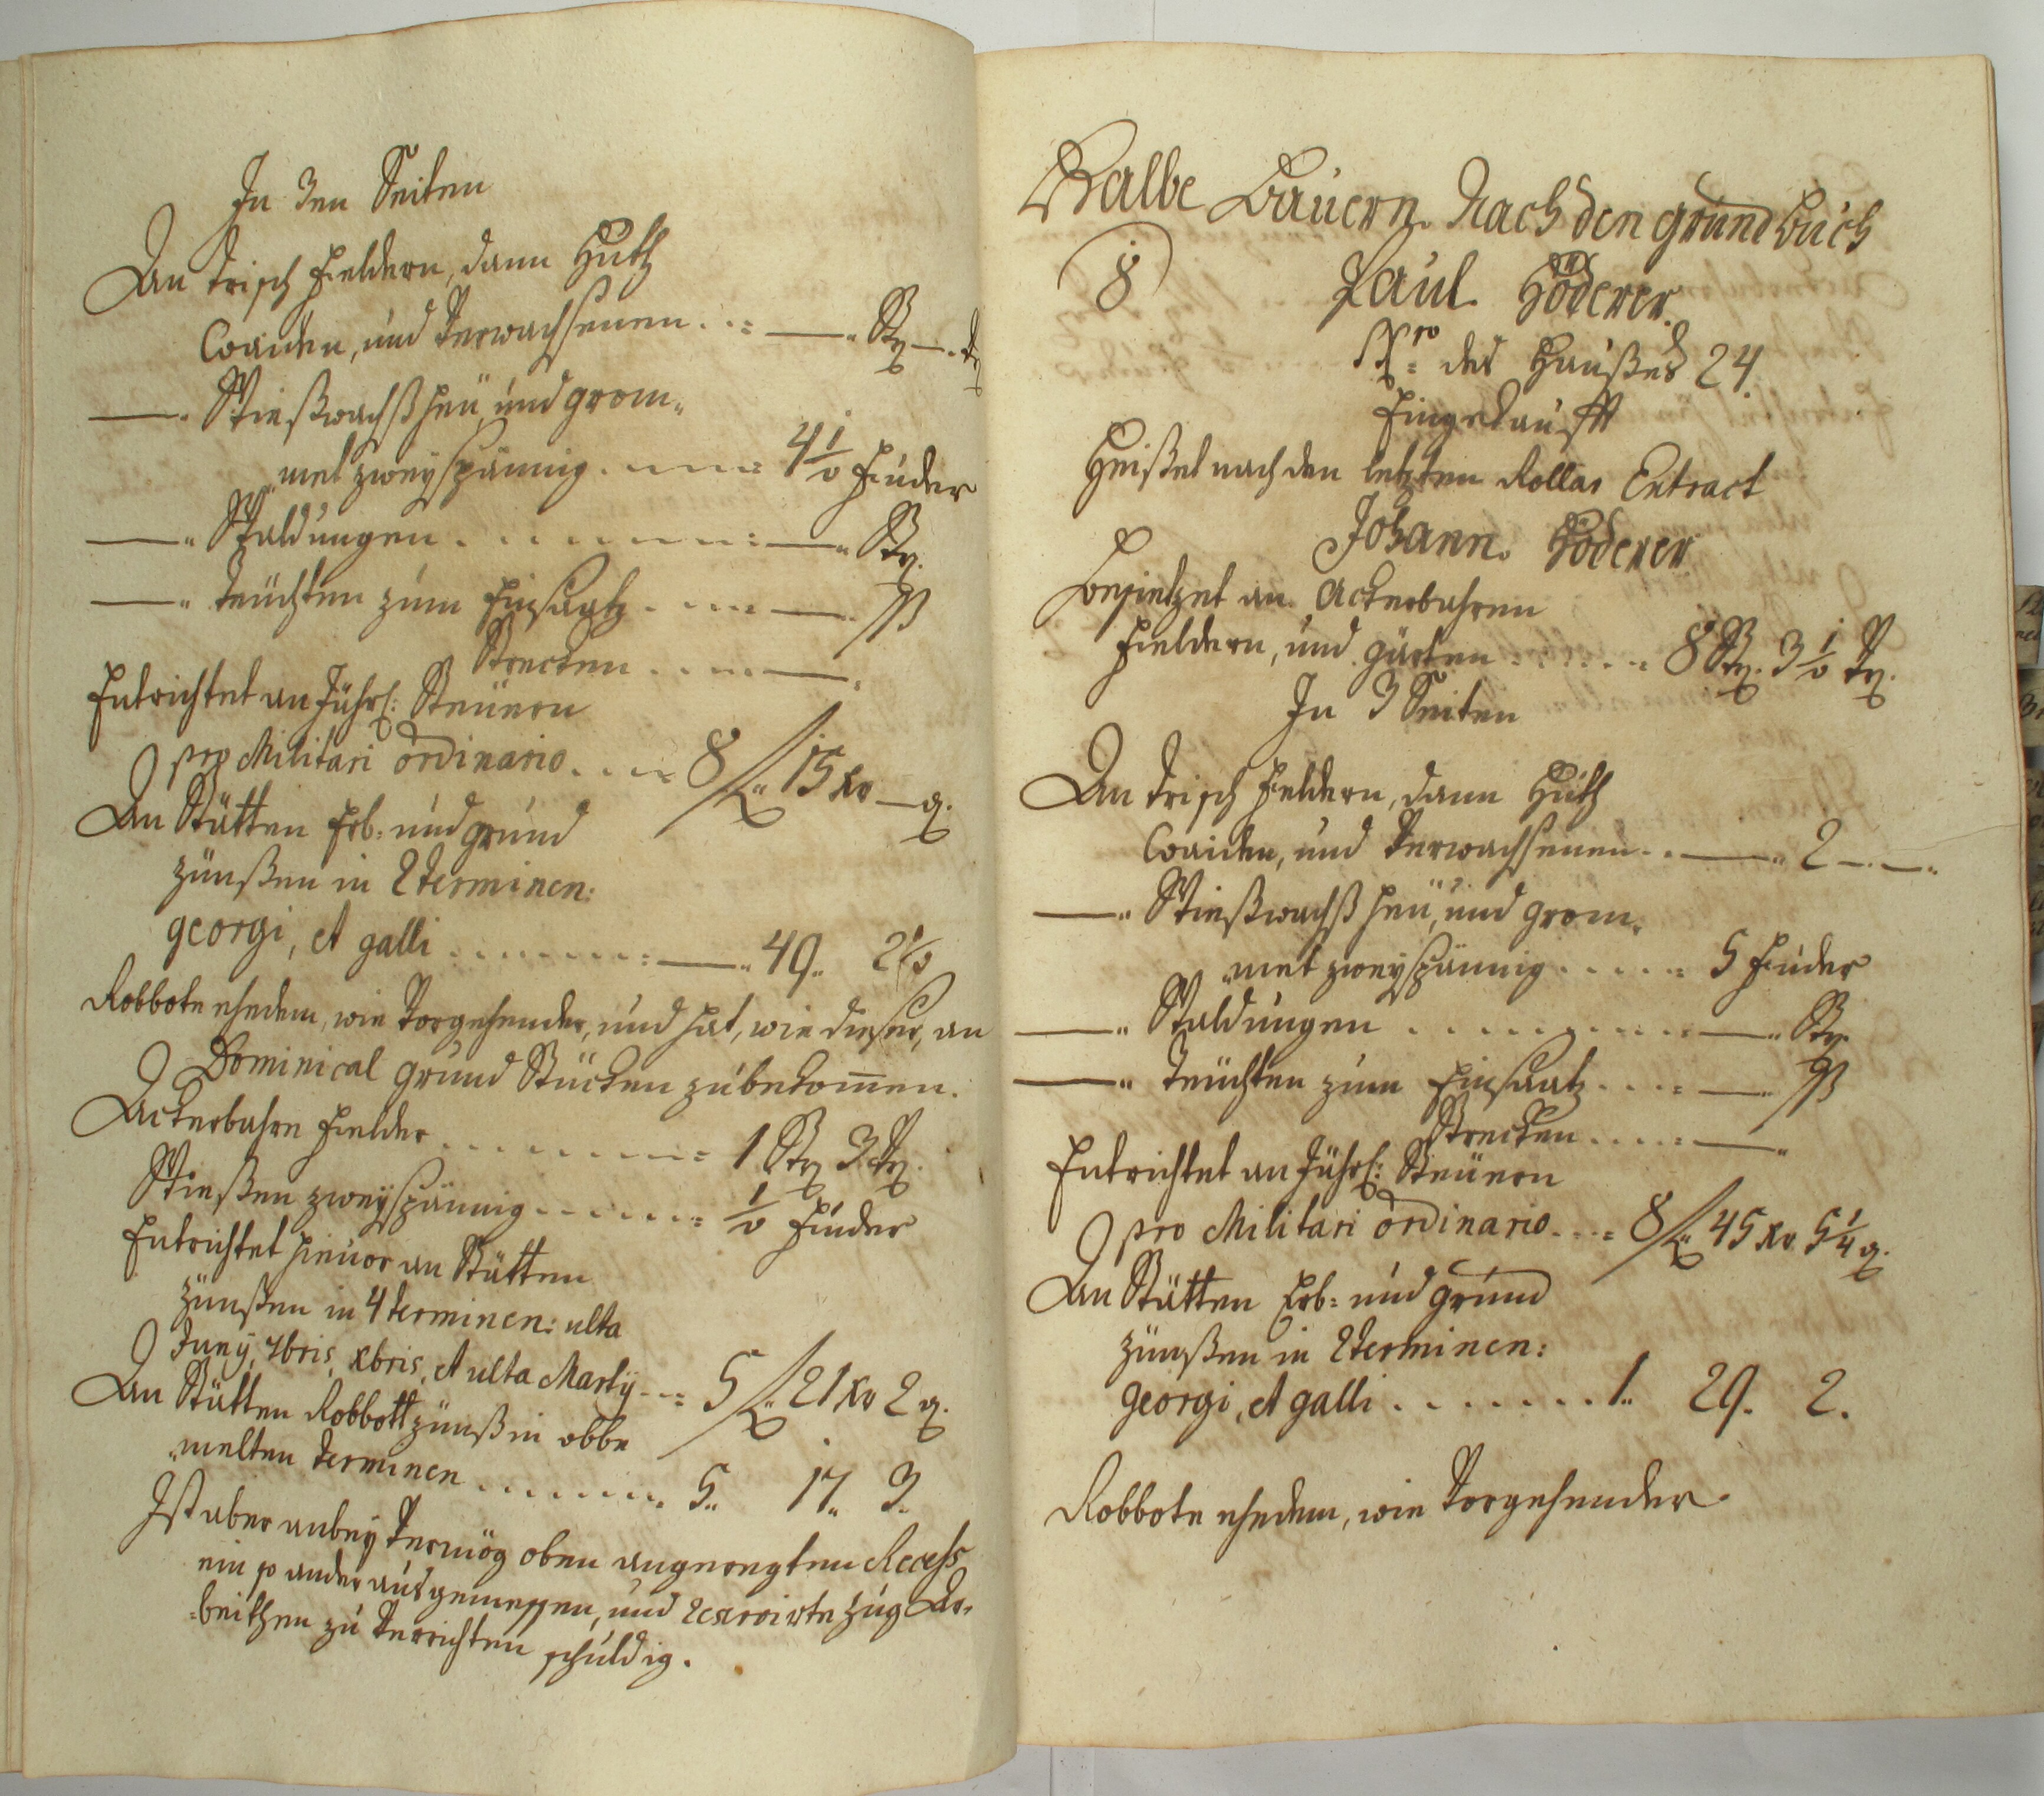 In 3en Seiten
An trisch Feldern, dann Huth
Waiden, und Verwachsenen . . = —.. Str —. Vtl
—.. Wießwachß heü, und grom„
„met zweÿspännig . . . . = 4 1/2 Fuder
—.. Waldungen . . . . . . . . = —.. Str.
—.. Teüchten zum Einsaatz . . . . —.. ß
Strecken . . . . —.
Entrichtet an Jährl: Steüern
pro Militari ordinario . . . = 8 f.. 15 xr — q.
An Stätten Erb= und grund
zünßen in 2 terminen:
georgi, et galli . . . . . . . . = —.. 49.. 2 1/2
Robbote ehedem, wie Vorgehender, und hat, wie dießer, an
Dominical grund Stücken zubekom̄en.
Ackerbahre Felder . . . . . . . . = 1 Str 3 Vtl.
Wießen zweÿspännig . . . . . . = 1/2 Fuder
Entrichtet hievor an Stätten
zünßen in 4 terminen: ulta
Junÿ, 7bris, xbris, et ulta Martÿ - - = 5 f.. 21 xr 2 q.
An Stätten Robbott zünß in obbe
„melten terminen . . . . . . . . 5.. 17.. 3.
Ist aber anbeÿ Vermög oben angeregten Recess
ein so ander ausgemessen, und reservirte Zug Ar„
=beithen zu Verrichten schuldig.
Halbe Bauern Nach den grund buch
8 Paul Höderer.
Nro = des Haußes 24
Eingekaufft
Heißet nach den letzten Rollar Extract
Johann Höderer
Besietzet an Ackerbahren
Feldern, und gärten . . . . . . = 8 Str. 3 1/2 Vtl.
In 3 Seiten
An trisch Feldern, dann Huth
Waiden, und Verwachsenen . . —.. 2 —. —.
—.. Wießwachß heü, und grom„
„met zweÿspännig . . . . . = 5 Fuder
—.. Waldungen . . . . . . . . . —.. Str.
—.. Teüchten zum Einsaatz . . . . = —.. ß
Strecken . . . . . = —..
Entrichtet an Jährl: Steüern
pro Militari ordinario . . . = 8 f.. 45 xr 5 1/4 q.
An Stätten Erb= und grund
zünßen in 2 terminen:
georgi, et galli . . . . . . . . 1.. 29. 2.
Robbote ehedem, wie Vorgehender